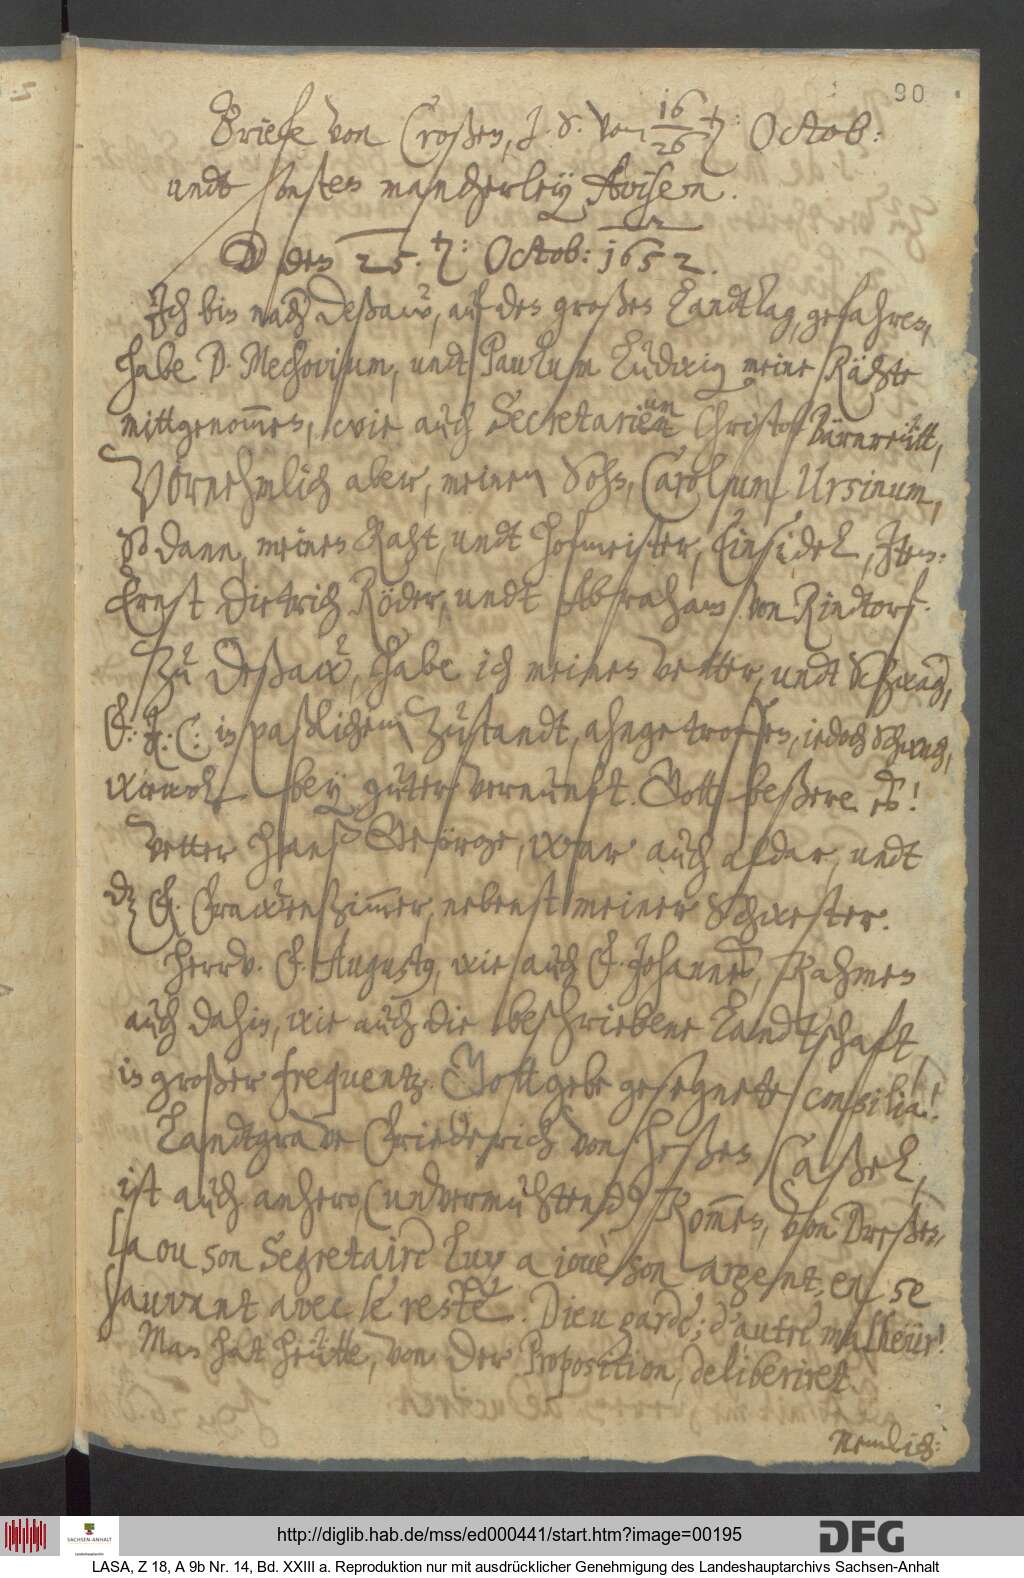 90
Briefe von Croßen, J. S. vom 16/26 t{en}: Octob:
undt sonsten mancherley Avisen.
☽ den 25. t{en}: Octob: 1652.
Ich bin nach Deßaw, auf den großen Landtag, gefahren,
habe D. Mechovium, undt Paulum Ludwig meine Rähte
mittgenom̅en, wie auch Secretarium Christof Bärnreütt,
Vornehmlich aber, meinen Sohn, Carolum Ursinum,
So dann, meinen Raht, undt Hofmeister, Einsidel, Item:
Ernst Dietrich Röder, undt Abraham von Rindtorf.
Zu Deßaw, habe ich meinen vetter, undt Schwag,
F. J. C. in paßlichem Zustandt, ahngetroffen, iedoch schwach,
wiewol bey guter vernunft. Gott beßere es!
Vetter Hanß Geörge, war auch alda, undt
dz F. Frawenzim̅er, nebenst meiner Schwester.
Herr v. F. Augustus, wie auch F. Johannes, Kahmen
auch dahin, wie auch die beschriebene Landtschaft,
in großer frequentz. Gott gebe gesegnete consilia!
Landtgrave Friederich von Heßen Caßel,
ist auch anhero, (undvermuhtend) Kom̅en, von Dreßen,
la ou son Segretaire luy a ioué son argent, en se
sauvant avec le reste. Dieu garde, d'autre malheur!
Man hat heütte, von der Proposition, deliberiret
Nemlich:
http://diglib.hab.de/mss/ed000441/start.htm?image=00195
SACHSEN-ANHALT
Landeshauptarchiv
DFG
LASA, Z 18, A 9b Nr. 14, Bd. XXIII a. Reproduktion nur mit ausdrücklicher Genehmigung des Landeshauptarchivs Sachsen-Anhalt